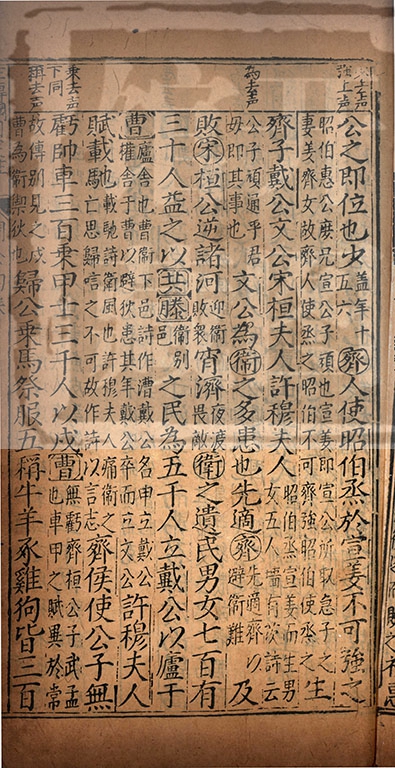 強上声
公之即位也少蓋年十五六齊人使昭伯烝於宣姜不可強之
昭伯惠公庶兄宣公子頑也宣姜即宣公所取急子之妻姜齊女故齊人使烝之昭伯不可齊強昭伯使烝之生
齊子戴公文公宋桓夫人許穆夫人昭伯烝宣姜而生男女五人墻有茨詩云
為去声
公子頑通乎君母即其事也文公為衛之多患也先適齊先適齊以避衛難及
敗宋桓公逆諸河迎衛敗眾宵濟夜渡畏敵衛之遺民男女七百有
三十人益之以共滕衛別邑之民為五千人立戴公以廬于
曹廬舍也曹衛下邑詩作漕戴公名申立戴公權舍于曹以避狄患其年戴公卒而立文公許穆夫人
賦載馳載馳詩衛風也許穆夫人痛衛之亡思歸言之不可故作詩以言志齊侯使公子無
乘去声
下同
虧帥車三百乘甲士三千人以戍曹無虧齊桓公子武孟也車甲之賦異於常
稱去声
故傳別見之戍曹為衛禦狄也歸公乘馬祭服五稱牛羊豕雞狗皆三百